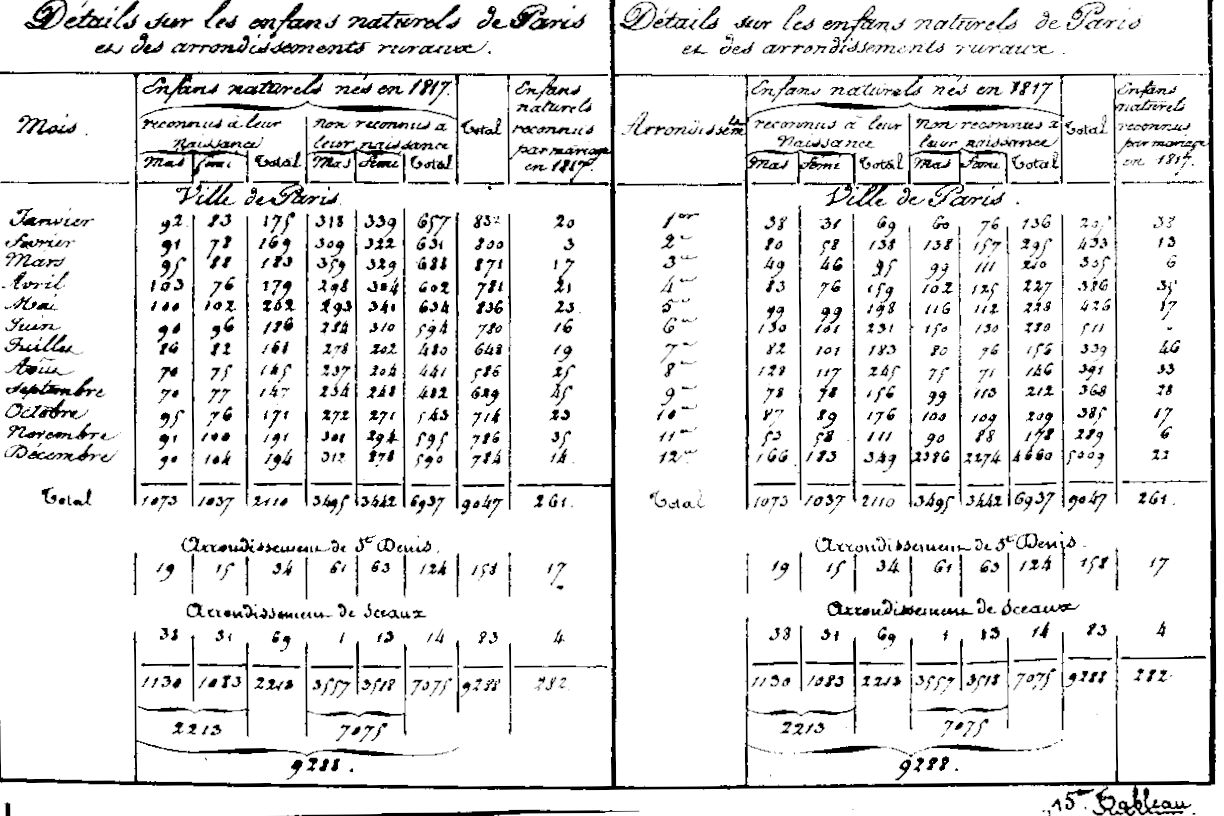 Détails sur les enfans naturels de Paris
et des arrondissements ruraux.
Mois.
Enfans naturels nés en 1817.
reconnus à leur
Naissance
non reconnus à
leur naissance
Total
Enfans
naturels
reconnus
par mariage
en 1817.
Mas Femi Total Mas Femi Total
Ville de Paris.
Janvier 92 83 175 318 339 657 832 20
Fevrier 91 78 169 309 322 631 800 3
Mars 95 88 183 359 329 688 871 17
Avril 103 76 179 298 304 602 781 21
Mai 100 102 202 293 341 634 836 23
Juin 90 96 186 284 310 594 780 16
Juillet 86 82 168 278 202 480 648 19
Août 70 75 145 237 204 441 586 25
Septembre 70 77 147 234 248 482 629 45
Octobre 95 76 171 272 271 543 714 23
Novembre 91 100 191 301 294 595 786 35
Décembre 90 104 194 312 278 590 784 14
Total 1073 1037 2110 3495 3442 6937 9047 261.
Arrondissement de St Denis.
19 15 34 61 63 124 158 17
Arrondissement de Sceaux
38 31 69 1 13 14 83 4
1130 1083 2213 3557 3518 7075 9288 282.
2213 7075
9288.
Détails sur les enfans naturels de Paris
et des arrondissements ruraux.
Arrondissem.ts
Enfans naturels nés en 1817
reconnus à leur
Naissance
Non reconnus à
leur naissance
Total
Enfans
naturels
reconnus
par mariage
en 1817.
Mas Femi Total Mas Femi Total
Ville de Paris.
1er 38 31 69 60 76 136 205 38
2me 80 58 138 138 157 295 433 13
3me 49 46 95 99 111 210 305 6
4me 83 76 159 102 125 227 386 35
5me 99 99 198 116 112 228 426 17
6me 130 101 231 150 130 280 511 "
7me 82 101 183 80 76 156 339 46
8me 128 117 245 75 71 146 391 33
9me 78 78 156 99 113 212 368 28
10me 87 89 176 100 109 209 385 17
11me 53 58 111 90 88 178 289 6
12me 166 183 349 2386 2274 4660 5009 22
Total 1073 1037 2110 3495 3442 6937 9047 261.
Arrondissement de St Denis.
19 15 34 61 63 124 158 17
Arrondissement de Sceaux
38 31 69 1 13 14 83 4
1130 1083 2213 3557 3518 7075 9288 282
2213 7075
9288.
15e Tableau